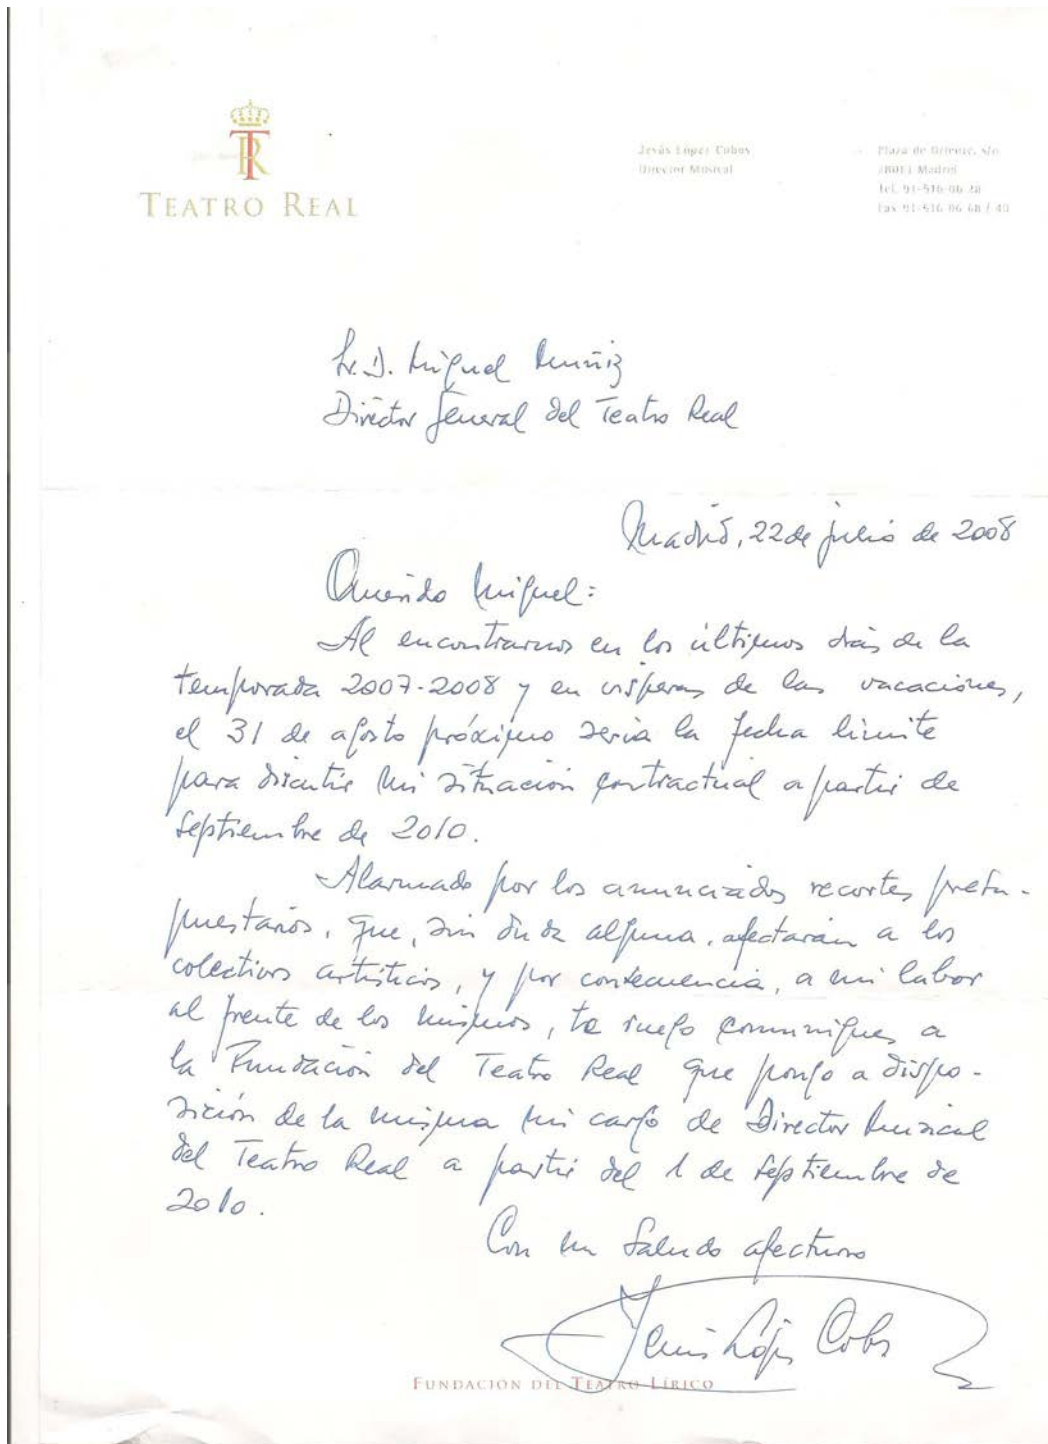 TEATRO REAL
Jesús López Cobos
Director Musical
Plaza de Oriente, s/n
28013 Madrid
Tel. 91-516 06
Fax 91-516 06 68 / 40
Sr. D. Miguel Muñiz
Director General del Teatro Real
Madrid, 22 de julio de 2008
Querido Miguel:
Al encontrarnos en los últimos días de la
temporada 2007-2008 y en vísperas de las vacaciones,
el 31 de agosto próximo sería la fecha límite
para discutir mi situación contractual a partir de
Septiembre de 2010.
Alarmado por los anunciados recortes presu-
puestarios, que, sin duda alguna, afectarán a los
colectivos artísticos, y por consecuencia, a mi labor
al frente de los mismos, te ruego comuniques a
la Fundación del Teatro Real que pongo a dispo-
sición de la misma mi cargo de Director Musical
del Teatro Real a partir del 1 de Septiembre de
2010.
Con un Saludo afectuoso
Jesús López Cobos
FUNDACIÓN DEL TEATRO LÍRICO